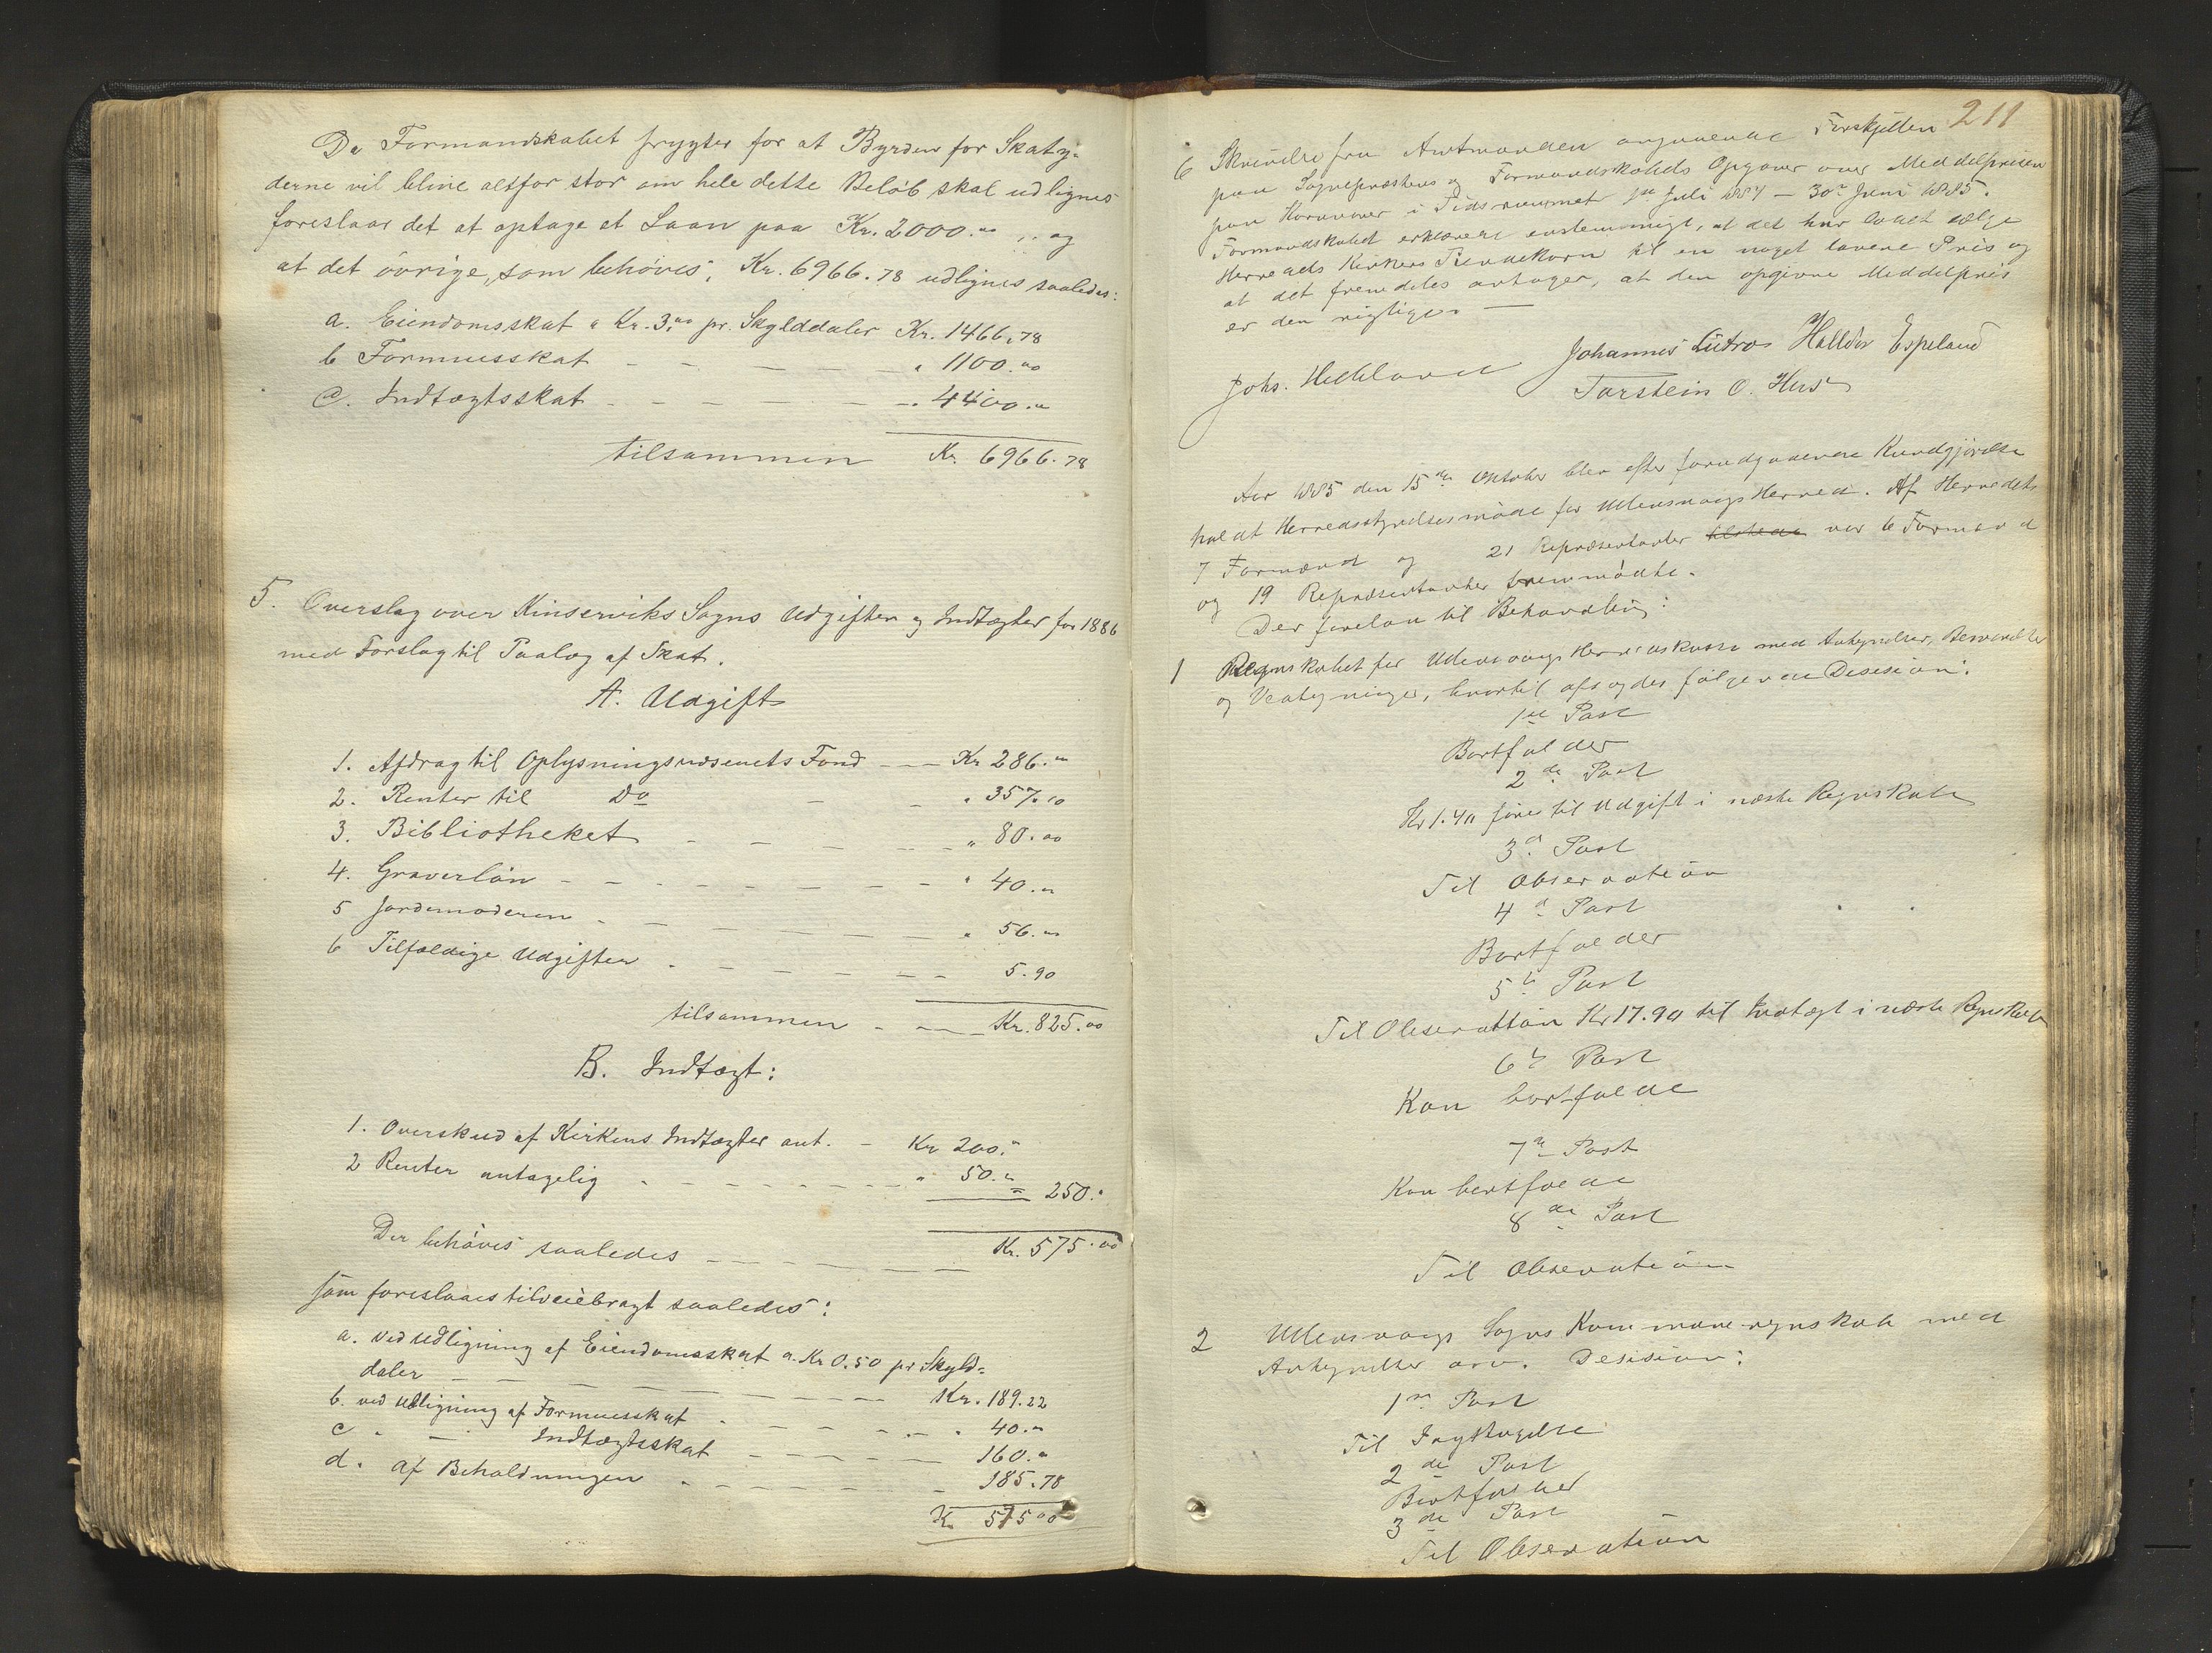 Da Formandskabet frygter for at Byrden for Skaty-
derne vil blive altfor stor om hele dette Beløb skal udlignes
foreslaar det at optage et Laan paa Kr. 2000.00 og
at det øvrige, som behøves, Kr. 6966.78 udlignes saaledes:
a. Eiendomsskat a Kr. 3.00 pr. Skylddaler Kr. 1466.78
b Formuesskat - - - - " 1100.00
c. Indtægtsskat - - - - - " 4400.00
tilsammen Kr. 6966.78
5. Overslag over Kinserviks Sogns Udgifter og Indtægter for 1886
med Forslag til Paalæg af Skat.
A. Udgift
1. Afdrag til Oplysningsvæsenets Fond - - Kr 286.00
2. Renter til Do - - " 357.10
3. Bibliotheket - - - - - " 80.00
4. Graverløn - - - - - - - " 40.00
5 Jordemoderen - - - - - - " 56.00
6 Tilfældige Udgifter - - - - - - 5.90
tilsammen - - - Kr. 825.00
B. Indtægt:
1. Overskud af Kirkens Indtægter ant. - Kr 200."
2 Renter antagelig - - - - - - - " 50."
= 250."
Der behøves saaledes - - - - - - Kr. 575.00
som foreslaaes tilveiebragt saaledes:
a. ved Udligning af Eiendomsskat a Kr 0.50 pr Skyld-
daler - - - - - - - - Kr. 189.22
b. ved Udligning af Formuesskat - - - - - " 40."
c " - Indtægtsskat - - - - - 160."
d. af Beholdningen - - - - - - 185.78
Kr 575.00
211
6 Skrivelse fra Amtmanden angaaende Forskjellen
paa Sognepræstens og Formandskabets Opgaver over Middelprisen
paa Kornvarer i Tidsrummet 1ste Juli 1884 - 30te Juni 1885.
Formandskabet erklærede enstemmigt, at det har ladet sælge
Herreds Kirkers Tiendekorn til en noget lavere Pris og
at det fremdeles antager, at den opgivne Middelpris
er den rigtige. -
Johannes Lutro Halldor Espeland
Johs. Helleland
Torstein O. Hus
Aar 1885 den 15de Oktober blev efter forudgaaende Kundgjørelse
holdt Herredsstyrelsesmøde for Ullensvangs Herred. Af Herredets
7 Formænd og 21 Repræsentanter tilstede var 6 Formænd
og 19 Repræsentanter fremmødte.
Der forelaa til Behandling:
1 Regnskabet for Ullensvangs Herredskasse med Antegnelser, Besvarelser
og Vedtegninger, hvortil afsagdes følgende Desision:
1ste Post
Bortfalder
2de Post
Kr 1.40 føres til Udgift i næste Regnskab
3die Post
Til Observation
4de Post
Bortfalder
5te Post
Til Observation Kr 17.90 til Indtægt i næste Regnskab
6te Post
Kan bortfalde
7de Post
Kan bortfalde
8de Post
Til Observation
2 Ullensvangs Sogns Kommuneregnskab med
Antegnelser osv. Desision:
1ste Post
Til
2de Post
Bortfalder
3die Post
Til Observation